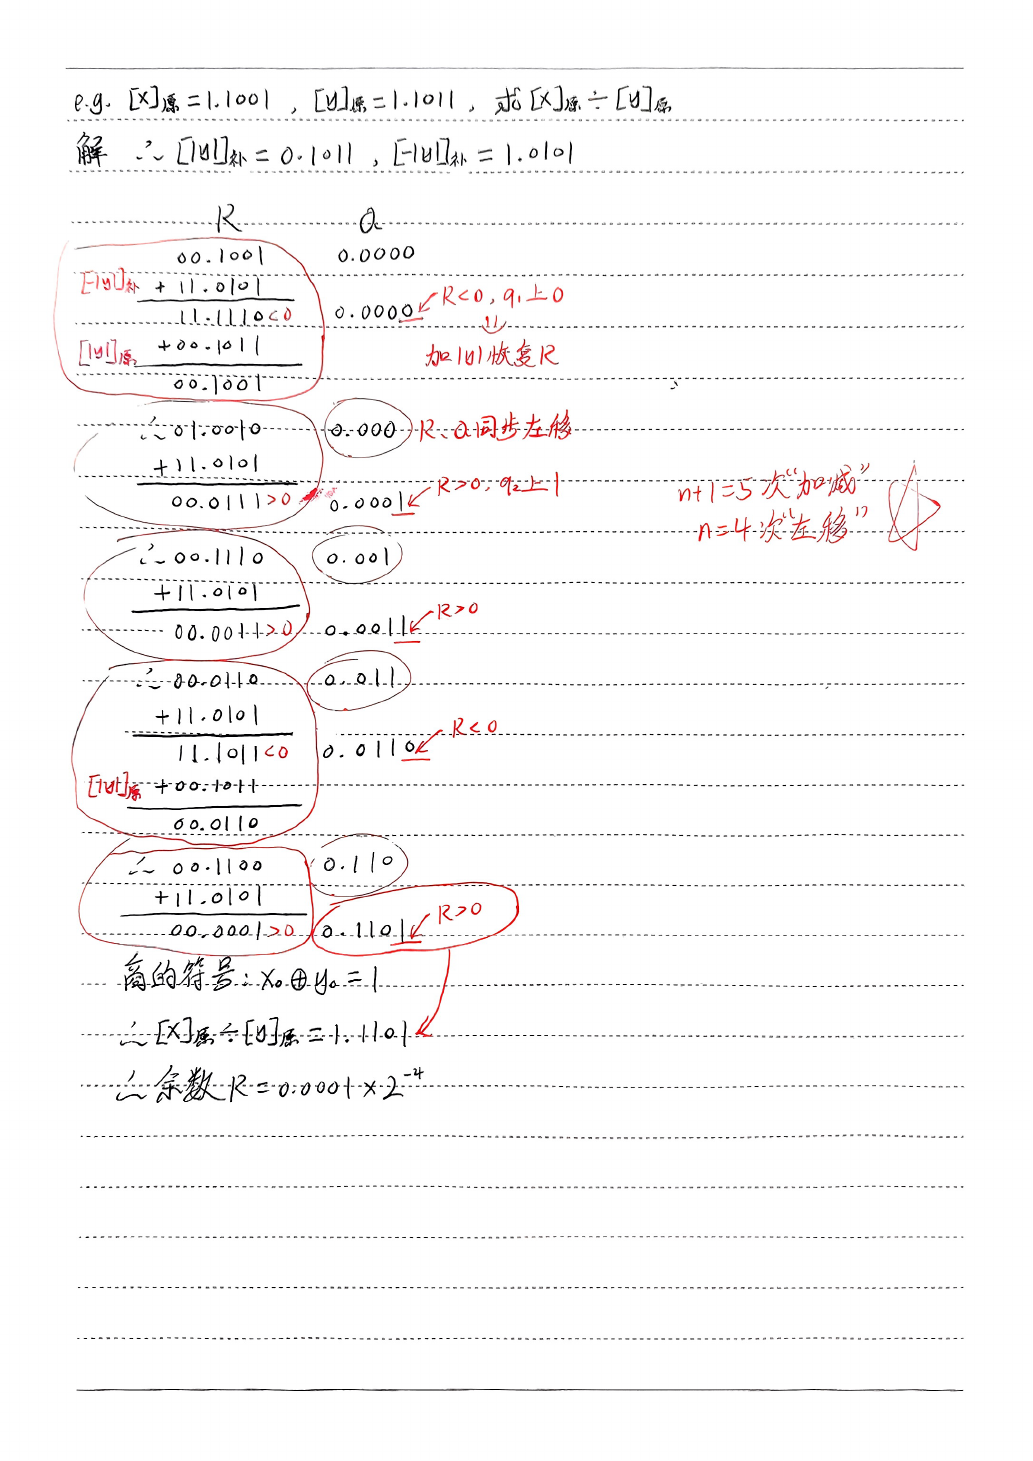 e.g. [x]原=1.1001 , [y]原=1.1011 , 求[x]原÷[y]原
解 ∴ [|y|]补 = 0.1011 , [-|y|]补 = 1.0101
R Q
00.1001 0.0000
[-|y|]补 + 11.0101
11.1110<0 0.0000 R<0, q₁上0
[|y|]原 +00.1011 加|y|恢复R
00.1001
∴ 01.0010 0.000 R、Q同步左移
+11.0101
00.0111>0 0.0001 R>0, q₂上1
n+1=5次“加减”
n=4次“左移”
∴ 00.1110 0.001
+11.0101
00.0011>0 0.0011 R>0
∴ 00.0110 0.011
+11.0101
11.1011<0 0.0110 R<0
[|y|]原 +00.1011
00.0110
∴ 00.1100 0.110
+11.0101
00.0001>0 0.1101 R>0
商的符号: x₀⊕y₀=1
∴ [x]原÷[y]原=1.1101
∴ 余数R=0.0001×2⁻⁴